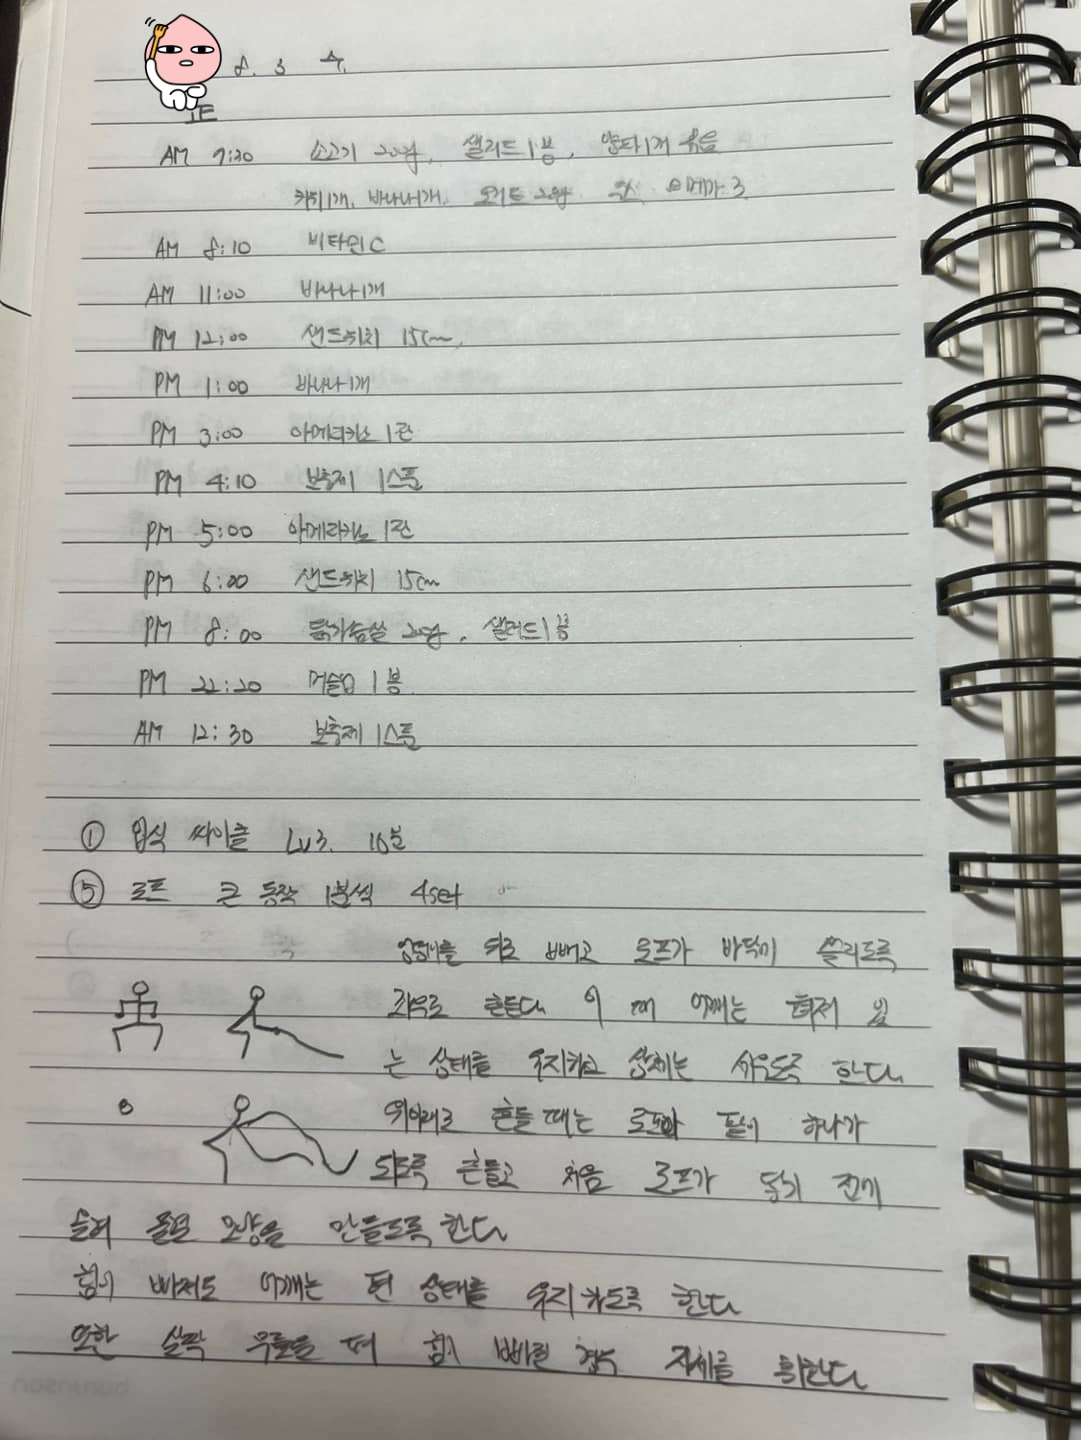 8. 3 수.
正
AM 7:20 소고기 200g, 샐러드 1봉, 양파 1개 볶음
키위 1개, 바나나 1개, 요거트 오메가 3
AM 8:10 비타민C
AM 11:00 바나나 1개
PM 12:00 샌드위치 15cm
PM 1:00 바나나 1개
PM 3:00 아메리카노 1잔
PM 4:10 보충제 1스푼
PM 5:00 아메리카노 1잔
PM 6:00 샌드위치 15cm
PM 8:00 닭가슴살 200g, 샐러드 1봉
PM 22:20 머슬업 1봉
AM 12:30 보충제 1스푼
① 입식 싸이클 Lv3. 10분
⑤ 로프 큰 동작 1분씩 4set
엉덩이를 뒤로 빼고 로프가 바닥에 쓸리도록
좌우로 흔든다 이 때 어깨는 펴져 있
는 상태를 유지하고 상체는 세우도록 한다.
위아래로 흔들 때는 로프와 팔이 하나가
되도록 흔들고 처음 로프가 닿기 전에
모양을 만들도록 한다
힘이 빠져도 어깨는 편 상태를 유지하도록 한다
또한 살짝 무릎을 힘이 빠질 경우 자세를 취한다